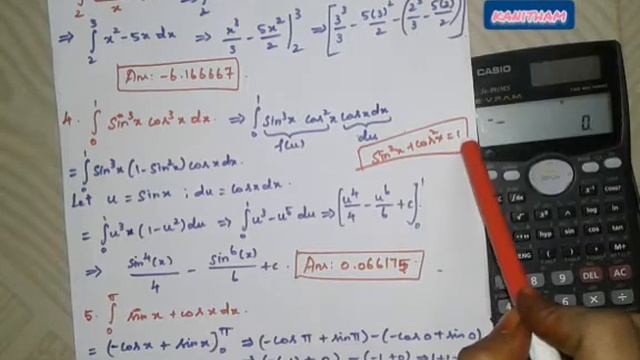 KANITHAM
⇒ ∫₂³ x² - 5x dx ⇒ x³/3 - 5x²/2 |₂³ ⇒ [3³/3 - 5(3)²/2 - (2³/3 - 5(2)/2
Ans: -6.166667
CASIO
4. ∫₀¹ sin³x cos³x dx ⇒ ∫₀¹ sin³x cos²x cosx dx
f(u) du
sin²x + cos²x = 1
= ∫₀¹ sin³x (1 - sin²x) cosx dx.
Let u = sinx ; du = cosx dx.
= ∫₀¹ u³ x (1 - u²) du ⇒ ∫₀¹ u³ - u⁵ du ⇒ [u⁴/4 - u⁶/6 + c]₀¹
⇒ sin⁴(x)/4 - sin⁶(x)/6 + c. Ans: 0.066175
5. ∫₀^π sinx + cosx dx.
= (-cosx + sinx)₀^π ⇒ (-cosπ + sinπ) - (-cos0 + sin0)
0
hyp sin cos tan
DEL AC